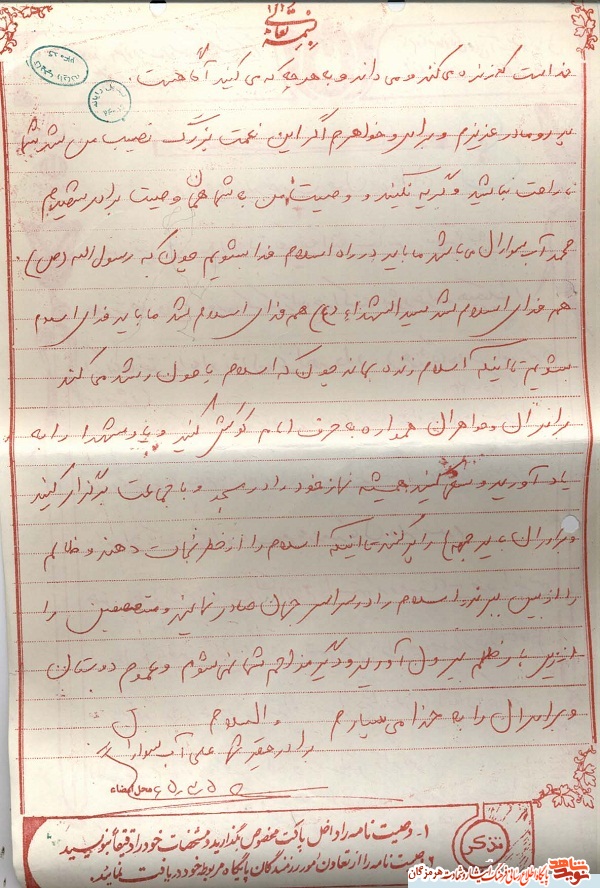 بسمه تعالی
خداست که زنده می کند و می داند و با هر چه که می کنید آگاهست.
پدر و مادر عزیزم و برادر و خواهرم اگر این نعمت بزرگ نصیب من شد شما
ناراحت نباشید و گریه نکنید و وصیت من با شما همان وصیت برادر شهیدم
محمد آب سواران می باشد ما باید در راه اسلام فدا بشویم چون که رسول الله (ص)
هم فدای اسلام شد سید الشهداء (ع) هم فدای اسلام شد ما باید فدای اسلام
بشویم تا اینکه اسلام زنده بماند چون که اسلام با خون رشد می کند
برادران و خواهران همواره به حرف امام گوش کنید و یاد شهدا را به
یاد آورید و سعی کنید همیشه نماز خود را در مسجد و با جماعت برگزار کنید
و برادران باید جبهه را پر کنند تا اینکه اسلام را از خطر نجات دهند و ظالم
را از بین ببرند و اسلام را در سراسر جهان صادر نمایند و مستضعفین را
از زیر بار ظلم بیرون آورید و دیگر مزاحم شما نمی شوم و عموم دوستان
و برادران را به خدا می سپارم والسلام
برادر حقیر شما علی آب سواران
محل امضاء
تذکر
۱- وصیت نامه را داخل پاکت مخصوص بگذارید و مشخصات خود را دقیقاً بنویسید
وصیت نامه را از تعاون امور رزمندگان پایگاه مربوط خود دریافت نمائید.
نوید شاهد
پایگاه اطلاع رسانی فرهنگ ایثار و شهادت هرمزگان